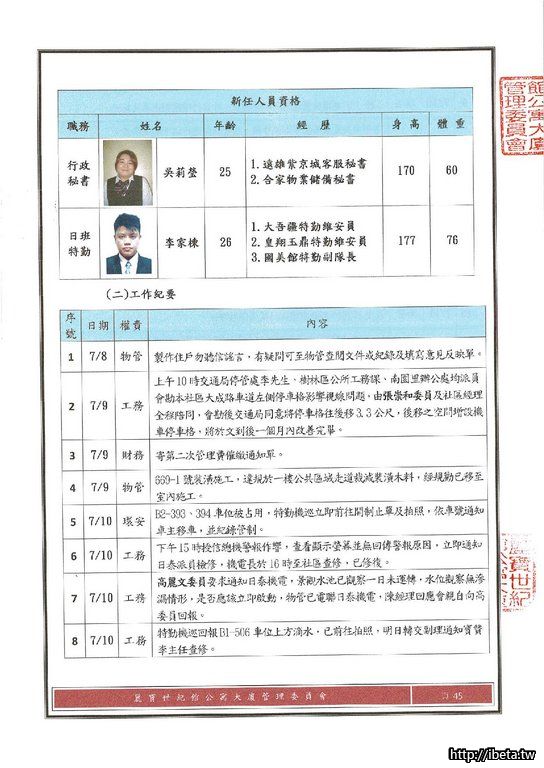 新任人員資格
職務 姓名 年齡 經歷 身高 體重
行政秘書 吳莉瑩 25 1.遠雄紫京城客服秘書 170 60
2.合家物業儲備秘書
日班特勤 李家棟 26 1.大吾疆特勤維安員 177 76
2.皇翔玉鼎特勤維安員
3.國美館特勤副隊長
(二)工作紀要
序號 日期 權責 內容
1 7/8 物管 製作住戶勿聽信謠言，有疑問可至物管查閱文件或紀錄及填寫意見反映單。
2 7/9 工務 上午10時交通局停管處李先生、樹林區公所工務課、南園里辦公處均派員
會勘本社區大成路車道左側停車格影響視線問題。由張崇和委員及社區經理
全程陪同，會勘後交通局同意將停車格往後移3.3公尺，後移之空間增設機
車停車格，將於文到後一個月內改善完畢。
3 7/9 財務 寄第二次管理費催繳通知單。
4 7/9 物管 669-1號裝潢施工，違規於一樓公共區域走道裁減裝潢木料，經規勸已移至
室內施工。
5 7/10 環安 B2-393、394車位被占用，特勤機巡立即前往開制止單及拍照，依車號通知
車主移車，並紀錄管制。
6 7/10 工務 下午15時授信總機警報作響，查看顯示螢幕並無回傳警報原因，立即通知
日泰派員檢修，機電長於16時至社區查核，已修復。
7 7/10 工務 高麗文委員要求通知日泰機電，景觀水池已觀察一日未運轉，水位觀察無滲
漏情形，是否應該立即啟動，物管已電聯日泰機電，陳經理回應會親自向高
委員回報。
8 7/10 工務 特勤機巡回報B1-506車位上方滴水，已前往拍照，明日轉交副理通知寶贊
李主任查修。
麗寶世紀館公寓大廈管理委員會 45
館公寓大廈
管理委員會
麗寶世紀
http://ibeta.tw